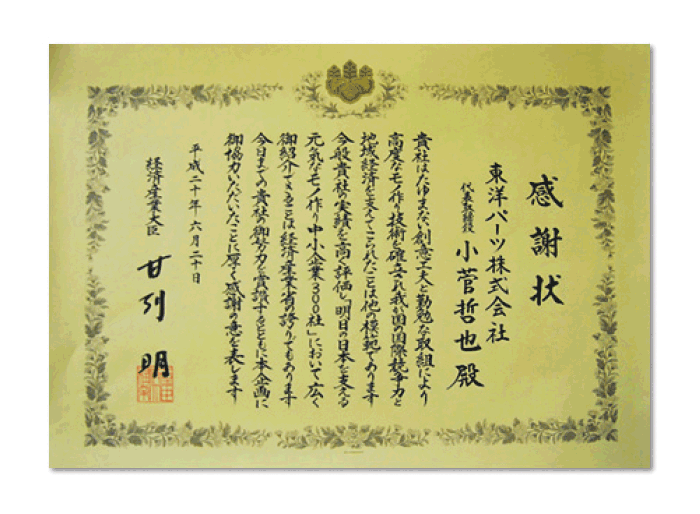 感謝状
東洋パーツ株式会社
代表取締役 小菅哲也 殿
貴社はたゆまない創意工夫と勤勉な取組により
高度なモノ作り技術を確立され我が国の国際競争力と
地域経済を支えてこられたことは他の模範であります
今般貴社の実績を高く評価し「明日の日本を支える
元気なモノ作り中小企業300社」において広く
御紹介できることは経済産業省の誇りでもあります
今日までの貴社の御努力を賞讃するとともに本企画に
御協力いただいたことに厚く感謝の意を表します
平成二十年六月二十日
経済産業大臣 甘利 明